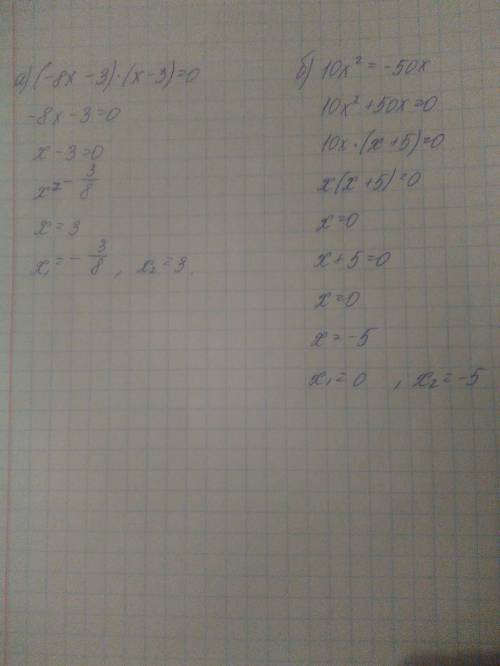 а) (-8x - 3)·(x - 3) = 0
-8x - 3 = 0
x - 3 = 0
x = - 3/8
x = 3
x₁ = - 3/8 , x₂ = 3
б) 10x² = -50x
10x² + 50x = 0
10x·(x + 5) = 0
x(x + 5) = 0
x = 0
x + 5 = 0
x = 0
x = -5
x₁ = 0 , x₂ = -5